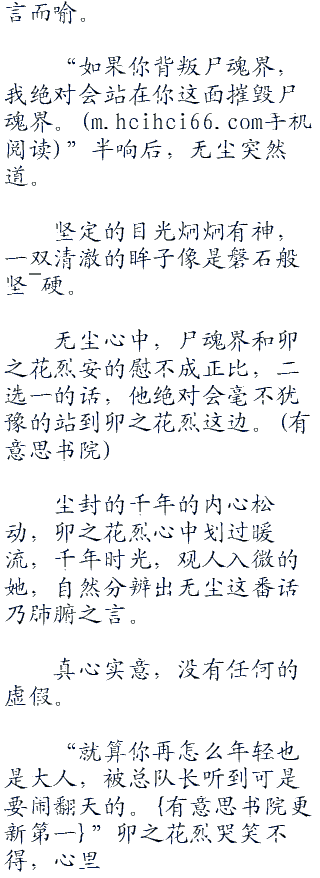 言而喻。
“如果你背叛尸魂界，
我绝对会站在你这面摧毁尸
魂界。(m.hcihci66.com手机
阅读)”半响后，无尘突然
道。
坚定的目光炯炯有神，
一双清澈的眸子像是磐石般
坚¯硬。
无尘心中，尸魂界和卯
之花烈安的慰不成正比，二
选一的话，他绝对会毫不犹
豫的站到卯之花烈这边。(有
意思书院)
尘封的千年的内心松
动，卯之花烈心中划过暖
流，千年时光，观人入微的
她，自然分辨出无尘这番话
乃肺腑之言。
真心实意，没有任何的
虚假。
“就算你再怎么年轻也
是大人，被总队长听到可是
要闹翻天的。{有意思书院更
新第一}”卯之花烈哭笑不
得，心里